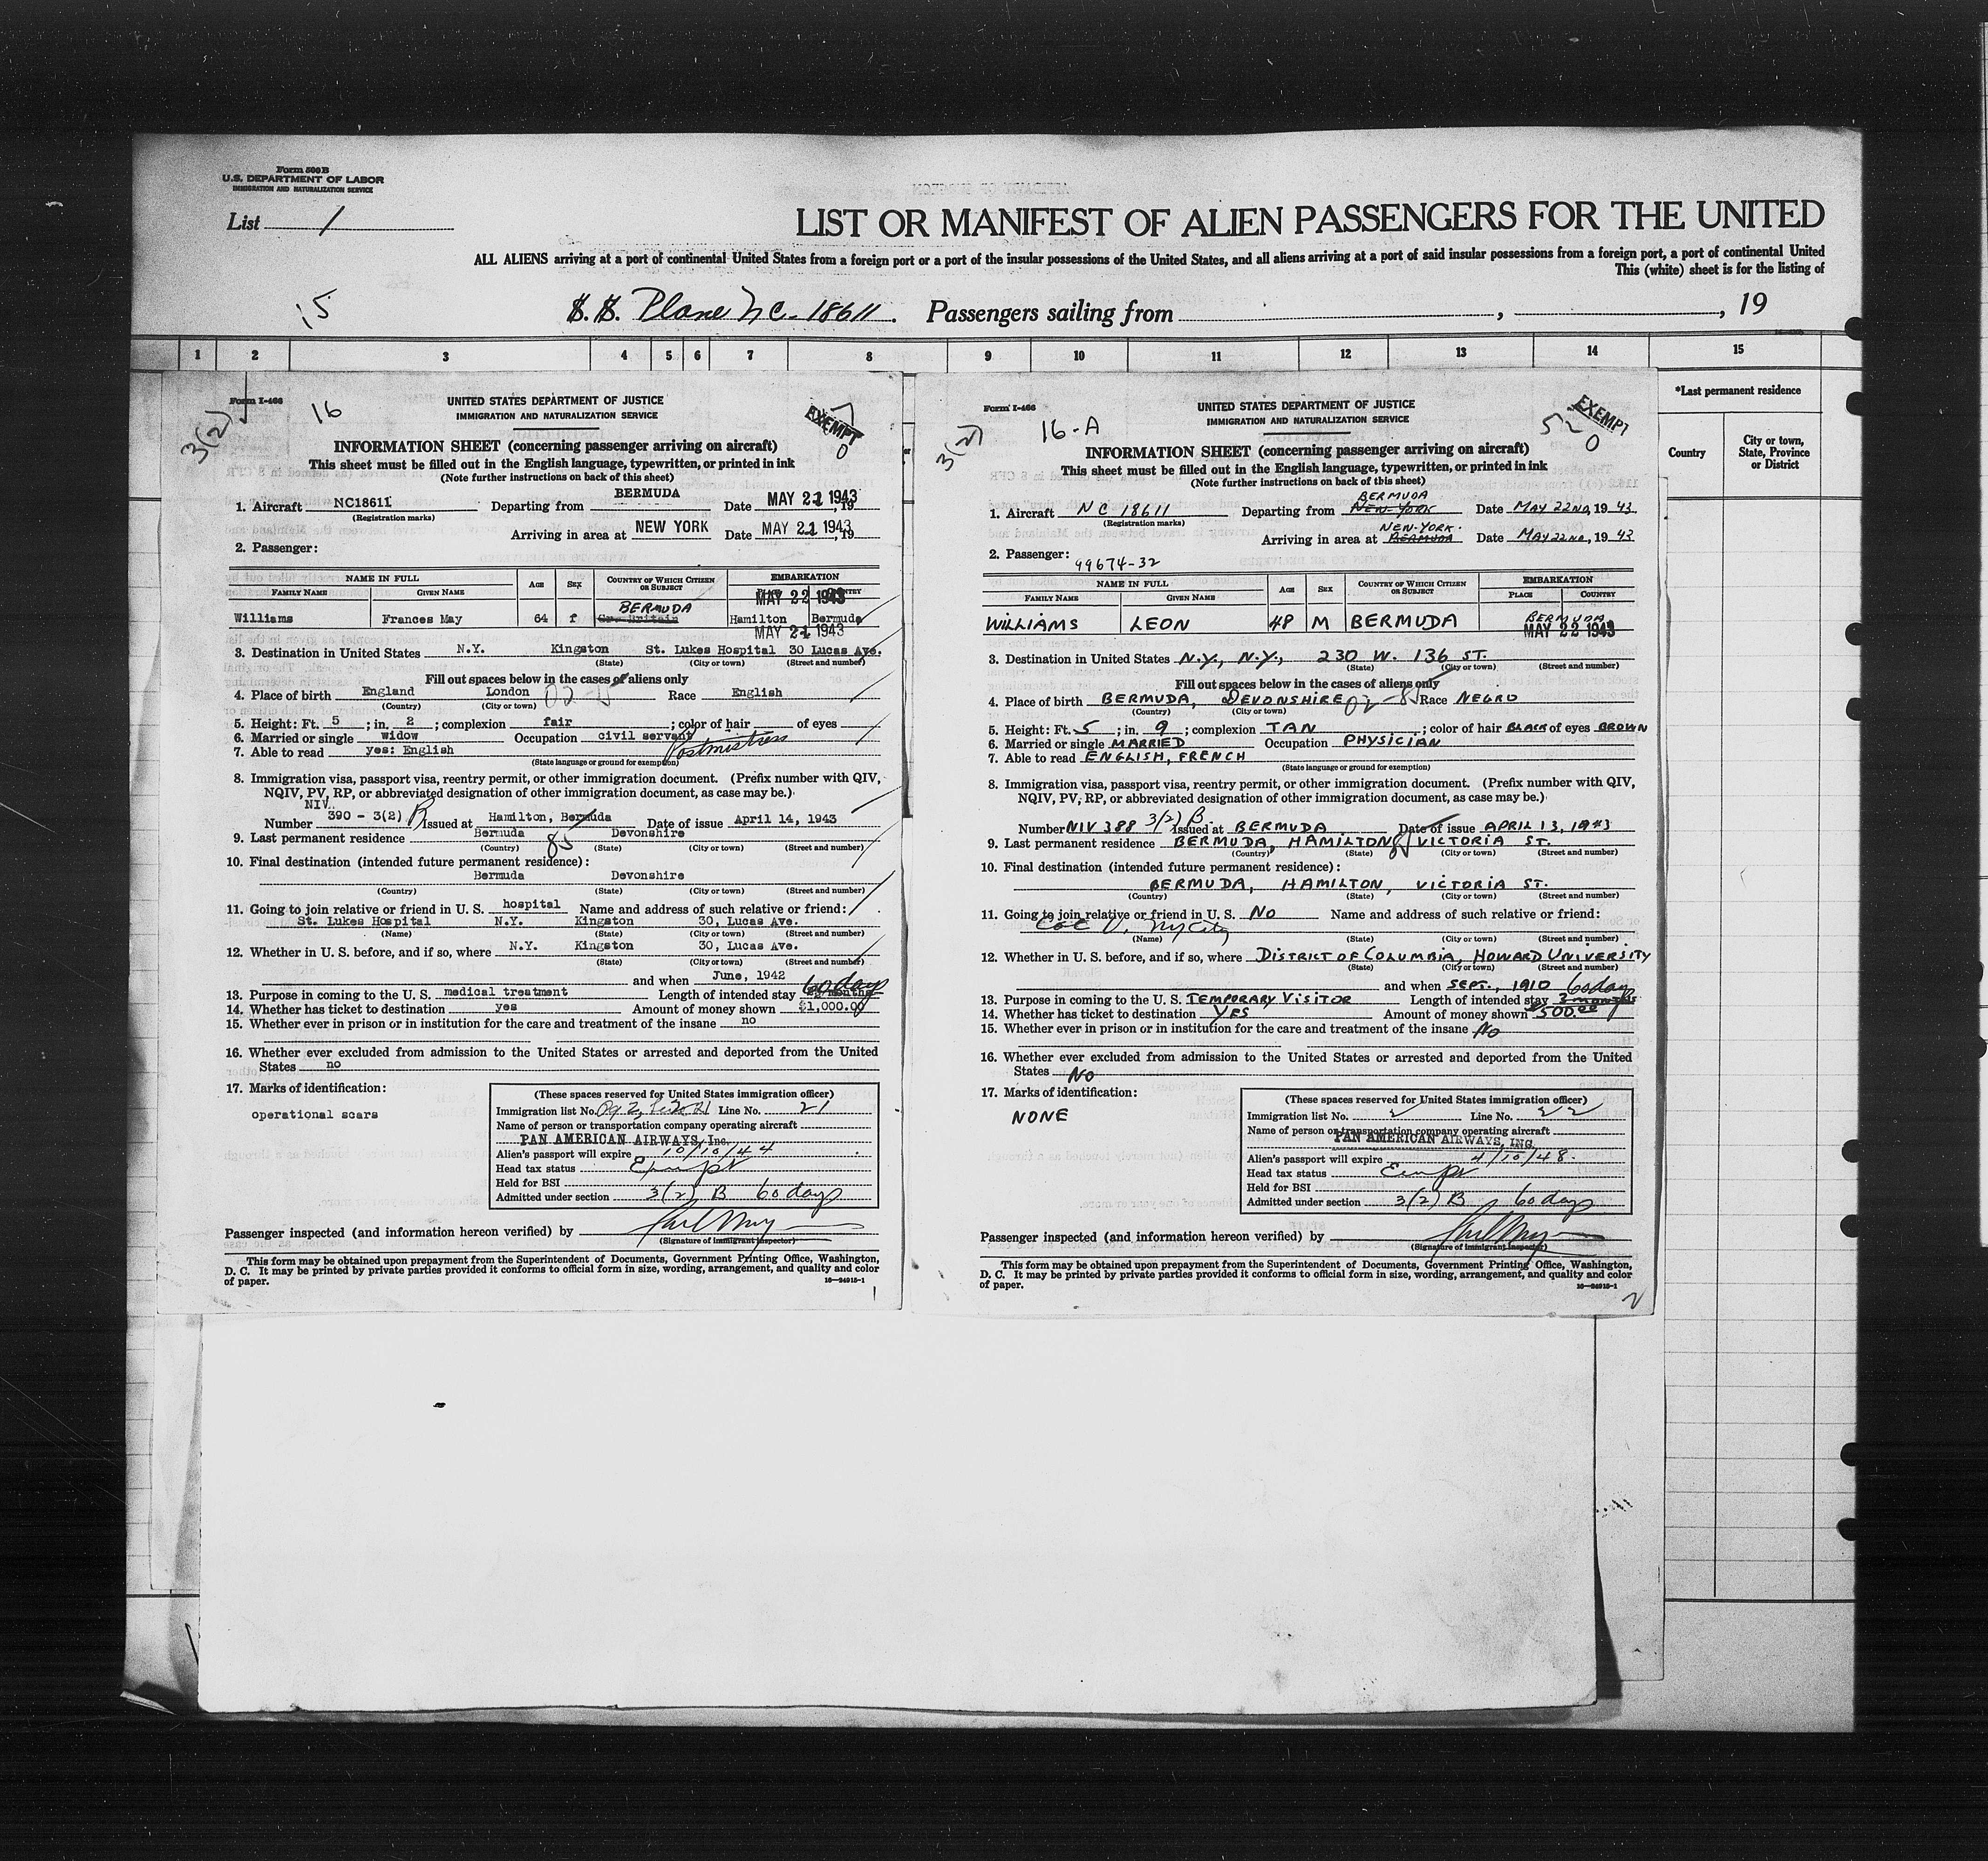 Form 500B
U.S. DEPARTMENT OF LABOR
IMMIGRATION AND NATURALIZATION SERVICE
List 1
LIST OR MANIFEST OF ALIEN PASSENGERS FOR THE UNITED
ALL ALIENS arriving at a port of continental United States from a foreign port or a port of the insular possessions of the United States, and all aliens arriving at a port of said insular possessions from a foreign port, a port of continental United
This (white) sheet is for the listing of
15
S.S. Plane NC-18611. Passengers sailing from , , 19
1 2 3 4 5 6 7 8 9 10 11 12 13 14 15
*Last permanent residence
Country City or town, State, Province or District
Form I-466
16
3(2)
UNITED STATES DEPARTMENT OF JUSTICE
IMMIGRATION AND NATURALIZATION SERVICE
EXEMPT
INFORMATION SHEET (concerning passenger arriving on aircraft)
This sheet must be filled out in the English language, typewritten, or printed in ink
(Note further instructions on back of this sheet)
1. Aircraft NC18611 Departing from BERMUDA Date MAY 21 1943, 19
(Registration marks)
Arriving in area at NEW YORK Date MAY 21 1943, 19
2. Passenger:
NAME IN FULL AGE SEX COUNTRY OF WHICH CITIZEN OR SUBJECT EMBARKATION
FAMILY NAME GIVEN NAME COUNTRY
MAY 22 1943
BERMUDA
Williams Frances May 64 f Gr. Britain Hamilton Bermuda
MAY 21 1943
3. Destination in United States N.Y. Kingston St. Lukes Hospital 30 Lucas Ave.
(State) (City or town) (Street and number)
Fill out spaces below in the cases of aliens only
4. Place of birth England London Race English
(Country) (City or town)
5. Height: Ft. 5 ; in. 2 ; complexion fair ; color of hair of eyes
6. Married or single widow Occupation civil servant Postmistress
7. Able to read yes: English
(State language or ground for exemption)
8. Immigration visa, passport visa, reentry permit, or other immigration document. (Prefix number with QIV,
NQIV, PV, RP, or abbreviated designation of other immigration document, as case may be.)
NIV.
Number 390 - 3(2) B Issued at Hamilton, Bermuda Date of issue April 14, 1943
9. Last permanent residence Bermuda 85 Devonshire
(Country) (State) (City or town) (Street and number)
10. Final destination (intended future permanent residence):
Bermuda Devonshire
(Country) (State) (City or town) (Street and number)
11. Going to join relative or friend in U. S. hospital Name and address of such relative or friend:
St. Lukes Hospital N.Y. Kingston 30, Lucas Ave.
(Name) (State) (City or town) (Street and number)
12. Whether in U. S. before, and if so, where N.Y. Kingston 30, Lucas Ave.
(State) (City or town) (Street and number)
and when June, 1942
13. Purpose in coming to the U. S. medical treatment Length of intended stay 60 days
14. Whether has ticket to destination yes Amount of money shown $1,000.00
15. Whether ever in prison or in institution for the care and treatment of the insane no
16. Whether ever excluded from admission to the United States or arrested and deported from the United
States no
17. Marks of identification:
operational scars
(These spaces reserved for United States immigration officer)
Immigration list No. Line No. 21
Name of person or transportation company operating aircraft
PAN AMERICAN AIRWAYS, Inc.
Alien's passport will expire 10/10/44
Head tax status Exempt
Held for BSI
Admitted under section 3(2) B 60 days
Passenger inspected (and information hereon verified) by
(Signature of immigrant inspector)
This form may be obtained upon prepayment from the Superintendent of Documents, Government Printing Office, Washington,
D. C. It may be printed by private parties provided it conforms to official form in size, wording, arrangement, and quality and color
of paper. 16-24915-1
1
Form I-466
16-A
3(2)
UNITED STATES DEPARTMENT OF JUSTICE
IMMIGRATION AND NATURALIZATION SERVICE
EXEMPT
520
INFORMATION SHEET (concerning passenger arriving on aircraft)
This sheet must be filled out in the English language, typewritten, or printed in ink
(Note further instructions on back of this sheet)
BERMUDA
1. Aircraft NC 18611 Departing from NEW YORK Date MAY 22ND, 19 43
(Registration marks)
NEW-YORK.
Arriving in area at BERMUDA Date MAY 22ND, 19 43
2. Passenger:
99674-32
NAME IN FULL AGE SEX COUNTRY OF WHICH CITIZEN OR SUBJECT EMBARKATION
FAMILY NAME GIVEN NAME PLACE COUNTRY
WILLIAMS LEON 48 M BERMUDA BERMUDA
MAY 22 1943
3. Destination in United States N.Y., N.Y., 230 W. 136 ST.
(State) (City or town) (Street and number)
Fill out spaces below in the cases of aliens only
4. Place of birth BERMUDA, DEVONSHIRE 02-85 Race NEGRO
(Country) (City or town)
5. Height: Ft. 5 ; in. 9 ; complexion TAN ; color of hair BLACK of eyes BROWN
6. Married or single MARRIED Occupation PHYSICIAN
7. Able to read ENGLISH, FRENCH
(State language or ground for exemption)
8. Immigration visa, passport visa, reentry permit, or other immigration document. (Prefix number with QIV,
NQIV, PV, RP, or abbreviated designation of other immigration document, as case may be.)
Number NIV 388 3(2) B Issued at BERMUDA Date of issue APRIL 13, 1943
9. Last permanent residence BERMUDA, HAMILTON, VICTORIA ST.
(Country) (State) (City or town) (Street and number)
10. Final destination (intended future permanent residence):
BERMUDA, HAMILTON, VICTORIA ST.
(Country) (State) (City or town) (Street and number)
11. Going to join relative or friend in U. S. NO Name and address of such relative or friend:
Col U. NY City
(Name) (State) (City or town) (Street and number)
12. Whether in U. S. before, and if so, where DISTRICT OF COLUMBIA, HOWARD UNIVERSITY
(State) (City or town) (Street and number)
and when SEPT., 1910
13. Purpose in coming to the U. S. TEMPORARY VISITOR Length of intended stay 3 months 60 days
14. Whether has ticket to destination YES Amount of money shown $500.00
15. Whether ever in prison or in institution for the care and treatment of the insane No
16. Whether ever excluded from admission to the United States or arrested and deported from the United
States No
17. Marks of identification:
NONE
(These spaces reserved for United States immigration officer)
Immigration list No. 2 Line No. 22
Name of person or transportation company operating aircraft
PAN AMERICAN AIRWAYS, INC.
Alien's passport will expire 4/10/48.
Head tax status Exempt
Held for BSI
Admitted under section 3(2) B 60 days
Passenger inspected (and information hereon verified) by
(Signature of immigrant inspector)
This form may be obtained upon prepayment from the Superintendent of Documents, Government Printing Office, Washington,
D. C. It may be printed by private parties provided it conforms to official form in size, wording, arrangement, and quality and color
of paper. 16-24915-1
2